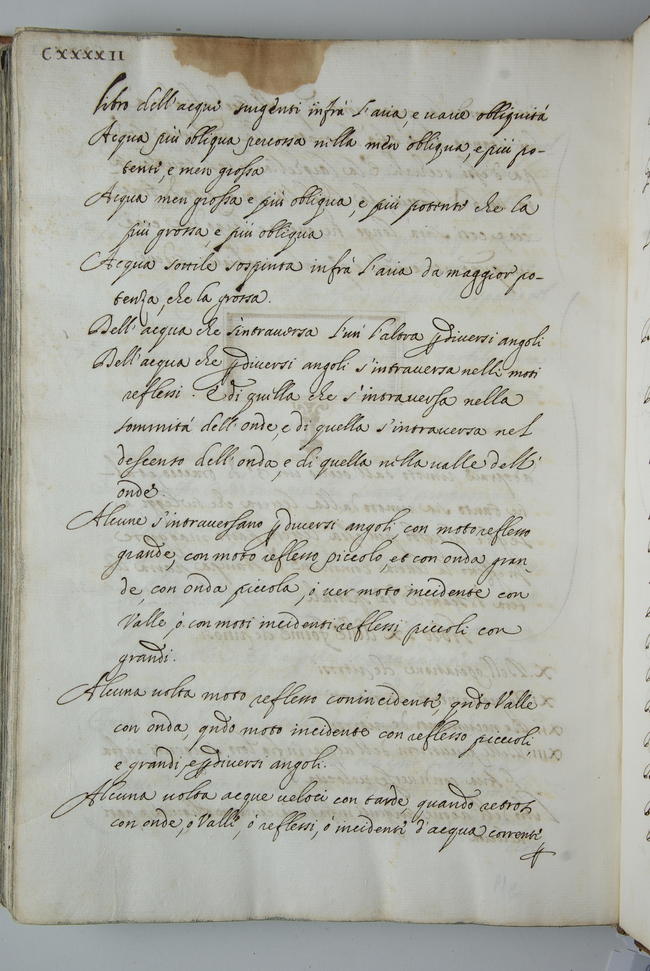 CXXXXII
libro dell'acque surgenti infrà l'aria, e varie obliquità
Acqua più obliqua percossa nella men obliqua, e più po-
tente, e men grossa
Acqua men grossa e più obliqua, e più potente che la
più grossa, e più obliqua
Acqua sottile sospinta infrà l'aria da maggior po-
tenza, che la grossa.
Dell'acqua che s'intraversa l'un l'altra p diversi angoli
Dell'acqua che p diversi angoli s'intraversa nelli moti
reflessi. E di quella che s'intraversa nella
sommità dell'onde, e di quella s'intraversa nel
descenso dell'onda, e di quella nella valle dell'
onde.
Alcune s'intraversano p diversi angoli, con moto reflesso
grande, con moto reflesso piccolo, et con onda gran-
de, con onda piccola, ò ver moto incidente con
Valle, ò con moti incidenti reflessi piccoli con
grandi.
Alcuna volta moto reflesso con incidente, qndo Valle
con onda, qndo moto incidente con reflesso piccoli,
e grandi, e p diversi angoli.
Alcuna volta acque veloci con tarde, quando
con onde, ò Valle, ò reflessi, ò incidenti d'acqua correnti